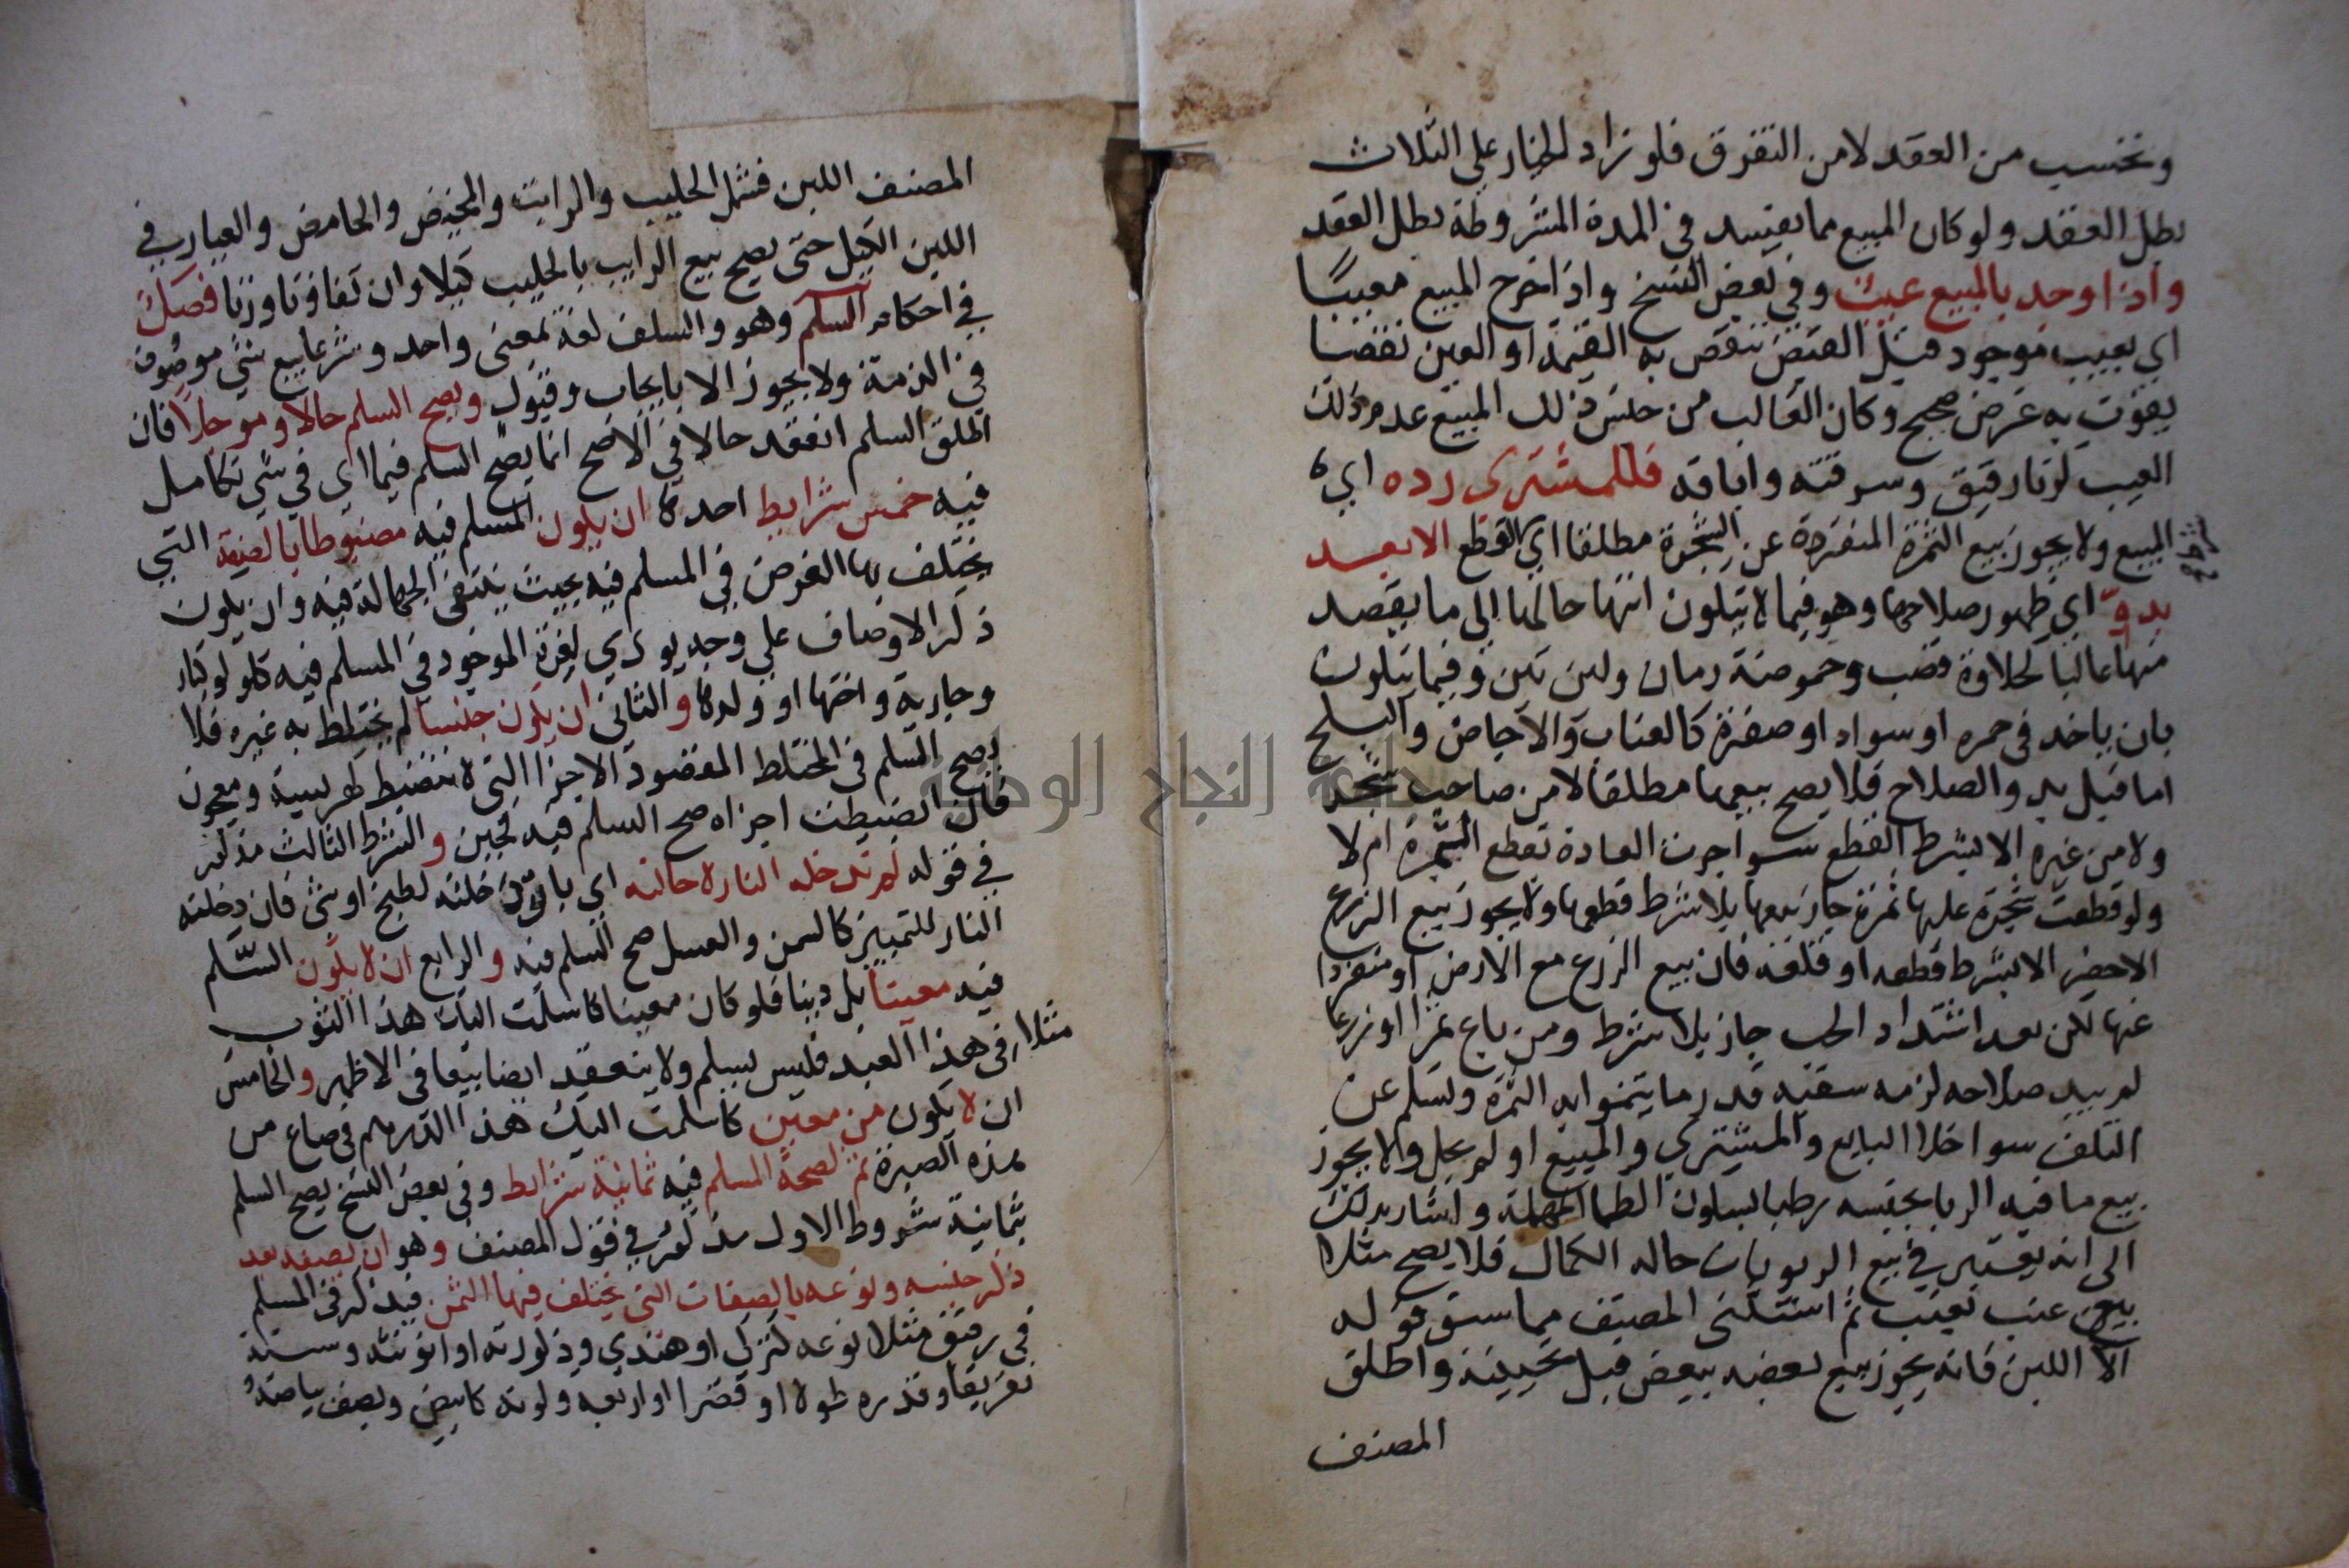 وتحسب من العقد لا من التفرق فلو زاد الخيار على الثلاث
بطل العقد ولو كان المبيع مما يفسد في المدة المشروطة بطل العقد
واذا وجد بالمبيع عيب وفي بعض النسخ واذا خرج المبيع معيبا
اي بعيب موجود قبل القبض تنقص به القيمة او العين نقصا
يفوت به غرض صحيح وكان الغالب من جنس ذلك المبيع عدم ذلك
العيب كزنا رقيق وسرقته واباقه فللمشتري رده اي
المبيع ولا يجوز بيع الثمرة المنفردة عن الشجرة مطلقا اي القطع الا بعد
بدو اي ظهور صلاحها وهو فيما لا يتلون انتها حالها الى ما يقصد
منها غالبا كحلاوة قصب وحموضة رمان ولين تين وفيما يتلون
بان ياخذ في حمره او سواد او صفرة كالعناب والاجاص والبلح
اما قبل بدو الصلاح فلا يصح بيعها مطلقا لا من صاحب شجر
ولا من غيره الا بشرط القطع سوا جرت العادة بقطع الثمرة ام لا
ولو قطعت شجرة عليها ثمرة جاز بيعها بلا شرط قطعها ولا يجوز بيع الزرع
الاخضر الا بشرط قطعه او قلعه فان بيع الزرع مع الارض او منفردا
عنها لكن بعد اشتداد الحب جاز بلا شرط ومن باع ثمرا او زرعا
لم يبد صلاحه لزمه سقيه قدر ما يتنمو ابه الثمرة وتسلم عن
التلف سوا خلا البايع والمشتري والمبيع او لم يخل ولا يجوز
بيع ما فيه الربا بجنسه رطبا بسكون الطا المهملة واشار بذلك
الى انه يعتبر في بيع الربويات حاله الكمال فلا يصح مثلا
بيع عنب بعنب ثم استثنى المصنف مما سبق قوله
الا اللبن فانه يجوز بيع بعضه ببعض قبل تجبينه واطلق
المصنف
المصنف اللبن فشمل الحليب والرايب والمخيض والحامض والعيار في
اللبن الكيل حتى يصح بيع الرايب بالحليب كيلا وان تفاوتا وزنا فصل
في احكام السلم وهو والسلف لغة بمعنى واحد وشرعا بيع شي موصوف
في الذمة ولا يجوز الا بايجاب وقبول ويصح السلم حالا وموجلا فان
اطلق السلم انعقد حالا في الاصح انما يصح السلم فيما اي في شي تكامل
فيه خمس شرايط احدها ان يكون المسلم فيه مضبوطا بالصفة التي
يختلف بها الغرض في المسلم فيه بحيث ينتفى الجهالة فيه وان يكون
ذكر الاوصاف على وجه يودي لعزة الموجود في المسلم فيه كلولو كبار
وجارية واختها او ولدها والثاني ان يكون جنسا لم يختلط به غيره فلا
يصح السلم في المختلط المقصود الاجزا التي لا تنضبط كهريسة ومعجون
فان انضبطت اجزاه صح السلم فيه كجبن والشرط الثالث مذكور
في قوله لم تدخله النار لاحالته اي بان دخلته لطبخ او شي فان دخلته
النار للتمييز كالسمن والعسل صح السلم فيه والرابع ان لا يكون السلم
فيه معينا بل دينا فلو كان معينا كاسلمت اليك هذا الثوب
مثلا في هذا العبد فليس بسلم ولا ينعقد ايضا بيعا في الاظهر والخامس
ان لا يكون من معين كاسلمت اليك هذا الدرهم في صاع من
هذه الصبرة ثم لصحة المسلم فيه ثمانية شرايط وفي بعض النسخ يصح السلم
بثمانية شروط الاول مذكور في قول المصنف وهو ان يصفه بعد
ذكر جنسه ونوعه بالصفات التي يختلف فيها الثمن فيذكر في المسلم
في رقيق مثلا نوعه كتركي او هندي وذكورته او انوثته وسنه
تقريبا وقدره طولا او قصرا او اربعه ولونه كابيض ويصف بياضه